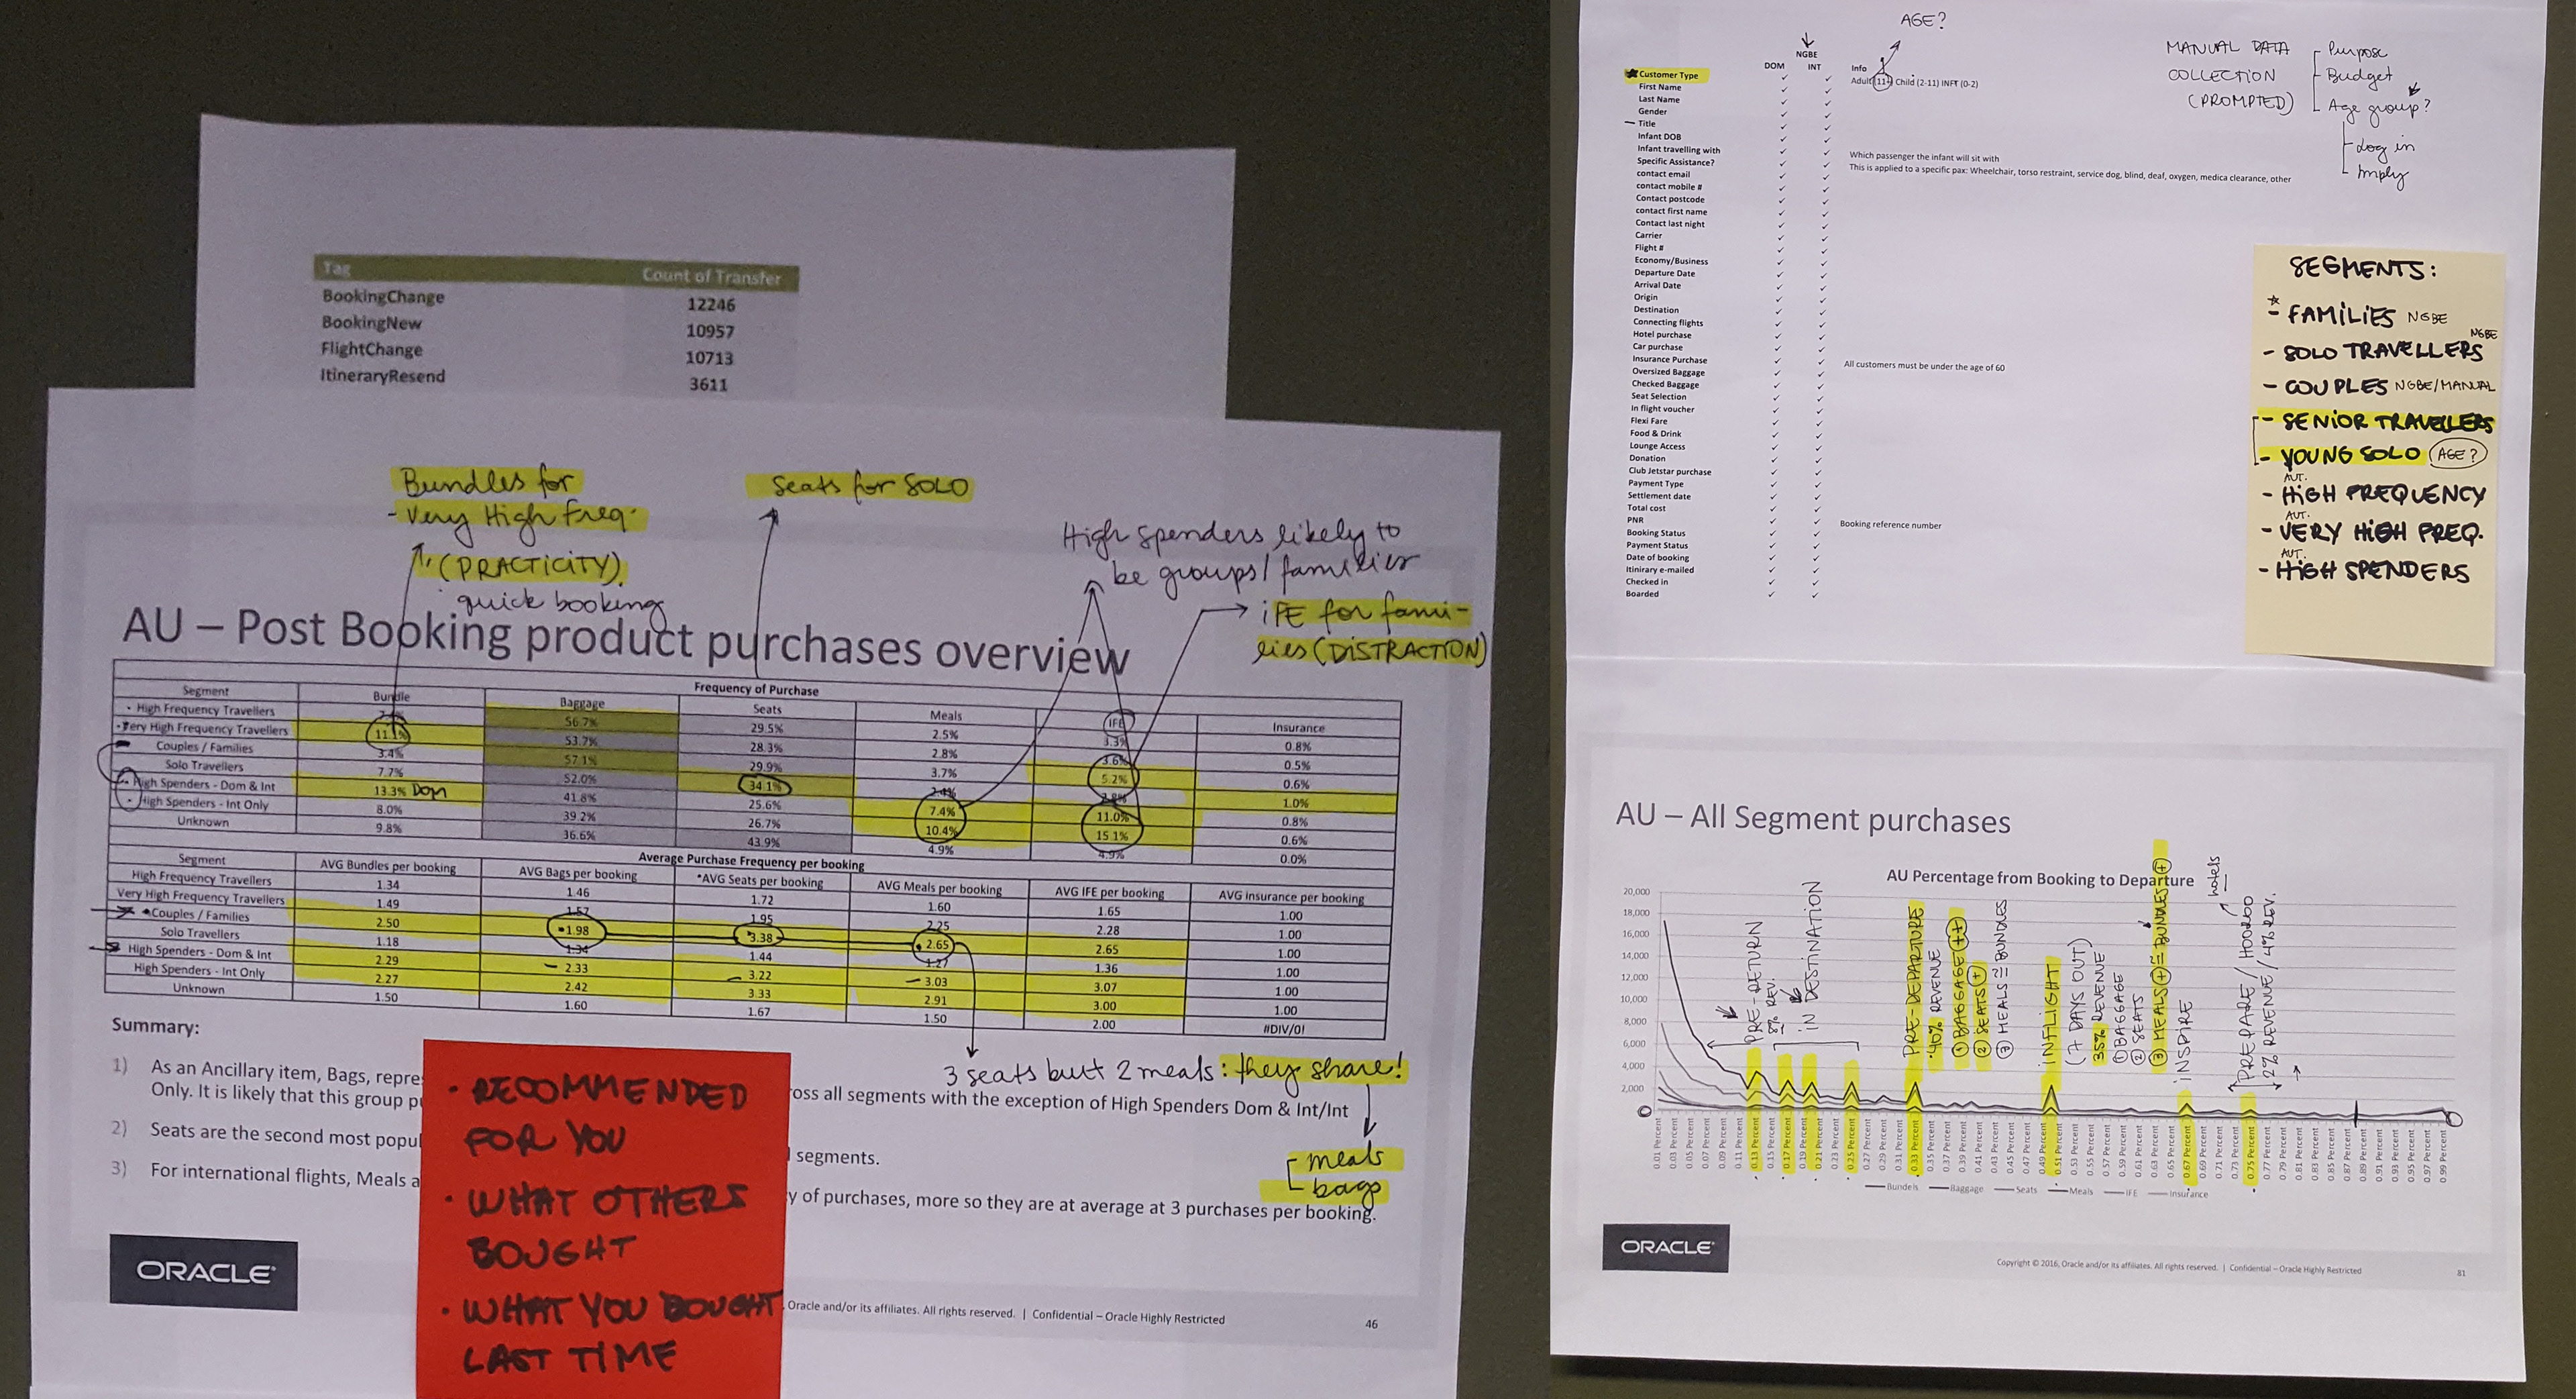 Tag Count of Transfer
BookingChange 12246
BookingNew 10957
FlightChange 10713
ItineraryResend 3611
Bundles for
- Very High Freq.
(PRACTICITY).
quick booking
Seats for SOLO
High spenders likely to
be groups/families
IFE for fami-
lies (DISTRACTION)
AU – Post Booking product purchases overview
Frequency of Purchase
Segment Bundle Baggage Seats Meals IFE Insurance
High Frequency Travellers 56.7% 29.5% 2.5% 3.3% 0.8%
Very High Frequency Travellers 11.1% 53.7% 28.3% 2.8% 3.6% 0.5%
Couples / Families 3.4% 57.1% 29.9% 3.7% 5.2% 0.6%
Solo Travellers 7.7% 52.0% 34.1% 2.4% 2.8% 1.0%
High Spenders - Dom & Int 13.3% Dom 41.8% 25.6% 7.4% 11.0% 0.8%
High Spenders - Int Only 8.0% 39.2% 26.7% 10.4% 15.1% 0.6%
Unknown 9.8% 36.6% 43.9% 4.9% 4.9% 0.0%
Average Purchase Frequency per booking
Segment AVG Bundles per booking AVG Bags per booking *AVG Seats per booking AVG Meals per booking AVG IFE per booking AVG insurance per booking
High Frequency Travellers 1.34 1.46 1.72 1.60 1.65 1.00
Very High Frequency Travellers 1.49 1.57 1.95 2.25 2.28 1.00
Couples / Families 2.50 1.98 3.38 2.65 2.65 1.00
Solo Travellers 1.18 1.34 1.44 1.27 1.36 1.00
High Spenders - Dom & Int 2.29 2.33 3.22 3.03 3.07 1.00
High Spenders - Int Only 2.27 2.42 3.33 2.91 3.00 1.00
Unknown 1.50 1.60 1.67 1.50 2.00 #DIV/0!
3 seats but 2 meals: they share!
meals
bags
Summary:
1) As an Ancillary item, Bags, repre oss all segments with the exception of High Spenders Dom & Int/Int
Only. It is likely that this group p
2) Seats are the second most popu segments.
3) For international flights, Meals a y of purchases, more so they are at average at 3 purchases per booking.
• RECOMMENDED
FOR YOU
• WHAT OTHERS
BOUGHT
• WHAT YOU BOUGHT
LAST TIME
ORACLE
Oracle and/or its affiliates. All rights reserved. | Confidential – Oracle Highly Restricted
46
AGE?
NGBE
DOM INT Info
Customer Type Adult (11+) Child (2-11) INFT (0-2)
First Name
Last Name
Gender
Title
Infant DOB
Infant travelling with Which passenger the infant will sit with
Specific Assistance? This is applied to a specific pax: Wheelchair, torso restraint, service dog, blind, deaf, oxygen, medica clearance, other
contact email
contact mobile #
Contact postcode
contact first name
Contact last night
Carrier
Flight #
Economy/Business
Departure Date
Arrival Date
Origin
Destination
Connecting flights
Hotel purchase
Car purchase
Insurance Purchase All customers must be under the age of 60
Oversized Baggage
Checked Baggage
Seat Selection
In flight voucher
Flexi Fare
Food & Drink
Lounge Access
Donation
Club Jetstar purchase
Payment Type
Settlement date
Total cost
PNR Booking reference number
Booking Status
Payment Status
Date of booking
Itinirary e-mailed
Checked in
Boarded
MANUAL DATA
COLLECTION
(PROMPTED)
Purpose
Budget
Age group?
Log in
Imply
SEGMENTS:
- FAMILIES NGBE
- SOLO TRAVELLERS NGBE
- COUPLES NGBE/MANUAL
- SENIOR TRAVELLERS
- YOUNG SOLO (AGE?)
AUT.
- HIGH FREQUENCY
AUT.
- VERY HIGH FREQ.
AUT.
- HIGH SPENDERS
AU – All Segment purchases
AU Percentage from Booking to Departure
20,000
18,000
16,000
14,000
12,000
10,000
8,000
6,000
4,000
2,000
PRE-RETURN
8% REV.
IN DESTINATION
PRE-DEPARTURE
40% REVENUE
① BAGGAGE (++)
② SEATS (+)
③ MEALS ≅ BUNDLES
INFLIGHT
(7 DAYS OUT)
35% REVENUE
① BAGGAGE
② SEATS
③ MEALS (+) = BUNDLES (+)
INSPIRE
hotels
2% REVENUE / 4% REV.
0.01 Percent
0.03 Percent
0.05 Percent
0.07 Percent
0.09 Percent
0.11 Percent
0.13 Percent
0.15 Percent
0.17 Percent
0.19 Percent
0.21 Percent
0.23 Percent
0.25 Percent
0.27 Percent
0.29 Percent
0.31 Percent
0.33 Percent
0.35 Percent
0.37 Percent
0.39 Percent
0.41 Percent
0.43 Percent
0.45 Percent
0.47 Percent
0.49 Percent
0.51 Percent
0.53 Percent
0.55 Percent
0.57 Percent
0.59 Percent
0.61 Percent
0.63 Percent
0.65 Percent
0.67 Percent
0.69 Percent
0.71 Percent
0.73 Percent
0.75 Percent
0.77 Percent
0.79 Percent
0.81 Percent
0.83 Percent
0.85 Percent
0.87 Percent
0.89 Percent
0.91 Percent
0.93 Percent
0.95 Percent
0.97 Percent
0.99 Percent
Bundels Baggage Seats Meals IFE Insurance
ORACLE
Copyright © 2016, Oracle and/or its affiliates. All rights reserved. | Confidential – Oracle Highly Restricted
81